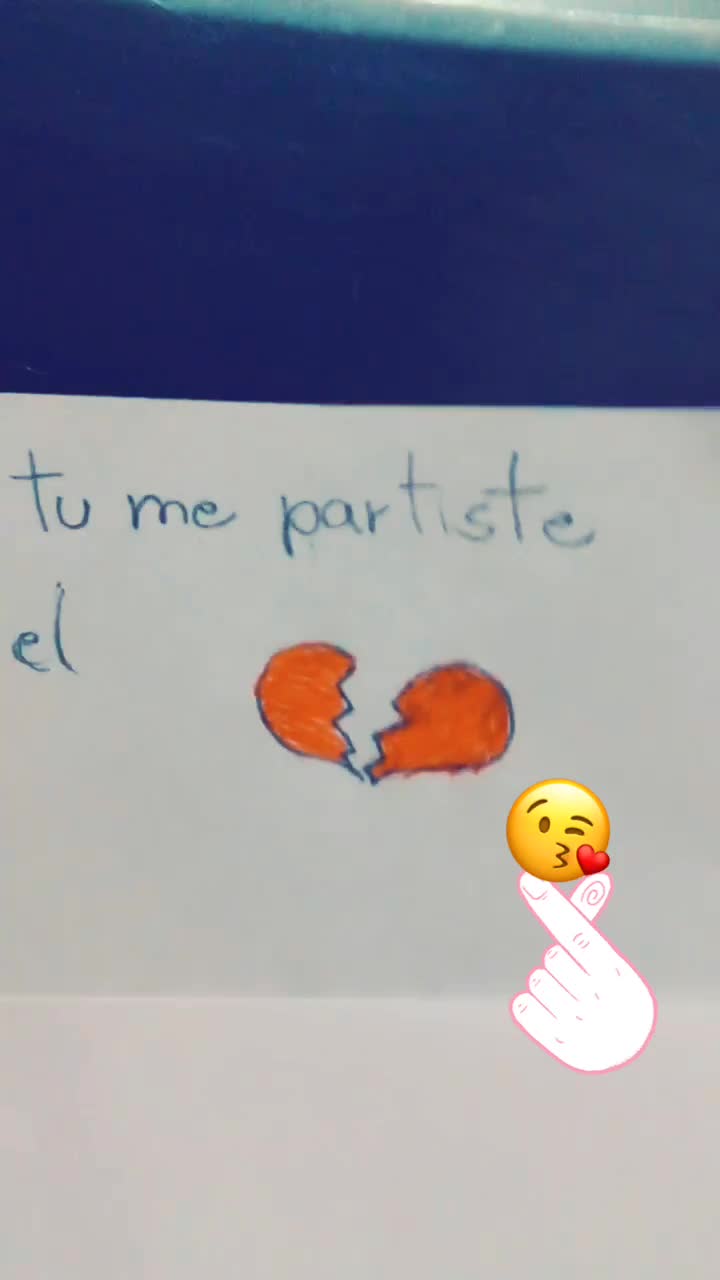 tu me partiste
el